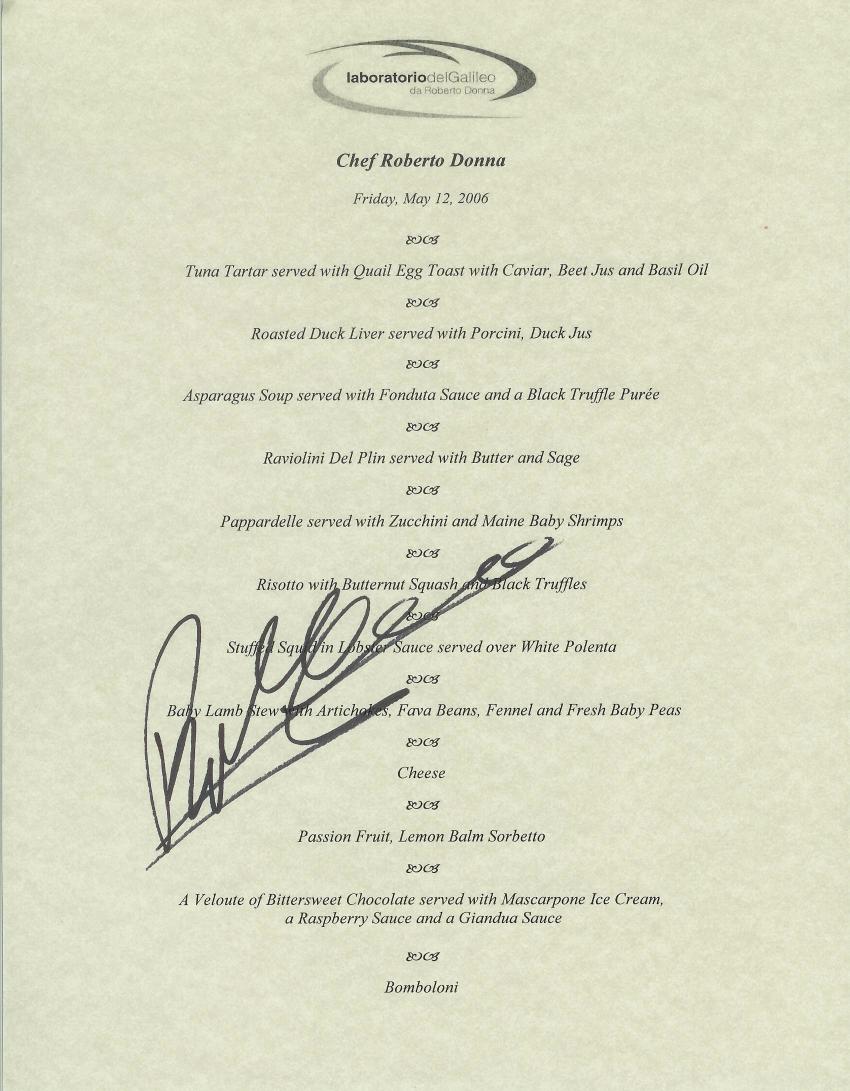 laboratoriodelGalileo
da Roberto Donna
Chef Roberto Donna
Friday, May 12, 2006
Tuna Tartar served with Quail Egg Toast with Caviar, Beet Jus and Basil Oil
Roasted Duck Liver served with Porcini, Duck Jus
Asparagus Soup served with Fonduta Sauce and a Black Truffle Purée
Raviolini Del Plin served with Butter and Sage
Pappardelle served with Zucchini and Maine Baby Shrimps
Risotto with Butternut Squash and Black Truffles
Stuffed Squid in Lobster Sauce served over White Polenta
Baby Lamb Stew with Artichokes, Fava Beans, Fennel and Fresh Baby Peas
Cheese
Passion Fruit, Lemon Balm Sorbetto
A Veloute of Bittersweet Chocolate served with Mascarpone Ice Cream,
a Raspberry Sauce and a Giandua Sauce
Bomboloni